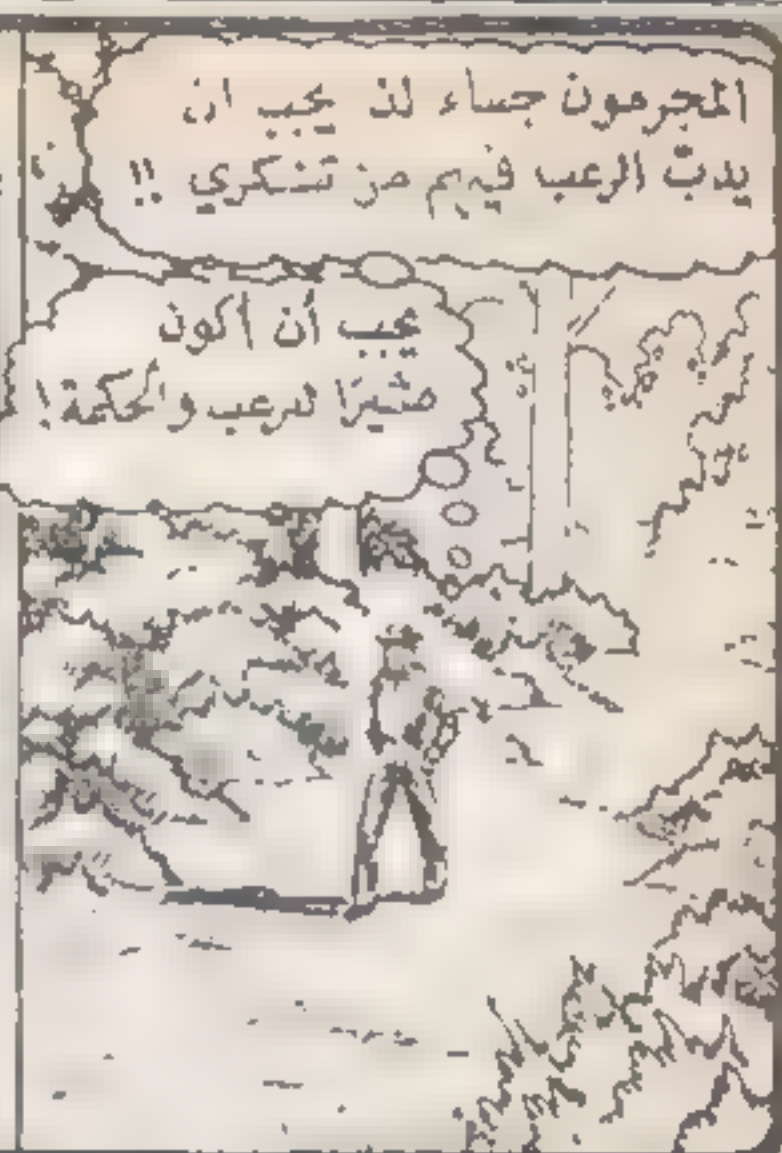 المجرمون جبناء لذ يجب ان
يدبّ الرعب فيهم من تنكري !!
يجب أن أكون
مثيرًا للرعب والحكمة!